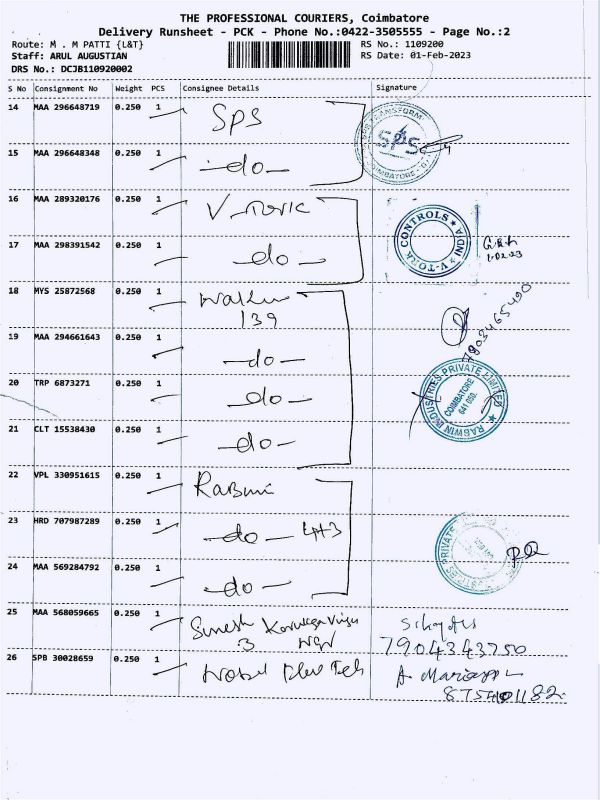 THE PROFESSIONAL COURIERS, Coimbatore
Delivery Runsheet - PCK - Phone No.:0422-3505555 - Page No.:2
Route: M . M PATTI {L&T} RS No.: 1109200
Staff: ARUL AUGUSTIAN RS Date: 01-Feb-2023
DRS No.: DCJB110920002
S No Consignment No Weight PCS Consignee Details Signature
14 MAA 296648719 0.250 1 SPS
SPS
COIMBATORE
15 MAA 296648348 0.250 1 -do-
16 MAA 289320176 0.250 1 V-Torc
V-TORK CONTROLS INDIA
17 MAA 298391542 0.250 1 -do-
1.02.23
18 MYS 25872568 0.250 1
139
7903465490
19 MAA 294661643 0.250 1 -do-
20 TRP 6873271 0.250 1 -do-
RABWIN INDUSTRIES PRIVATE LIMITED
COIMBATORE
641 050.
21 CLT 15538430 0.250 1 -do-
22 VPL 330951615 0.250 1
23 HRD 707987289 0.250 1 -do-
PRIVATE
24 MAA 569284792 0.250 1 -do-
25 MAA 568059665 0.250 1 Suresh
3
7904343750
26 SPB 30028659 0.250 1
A Mariapp